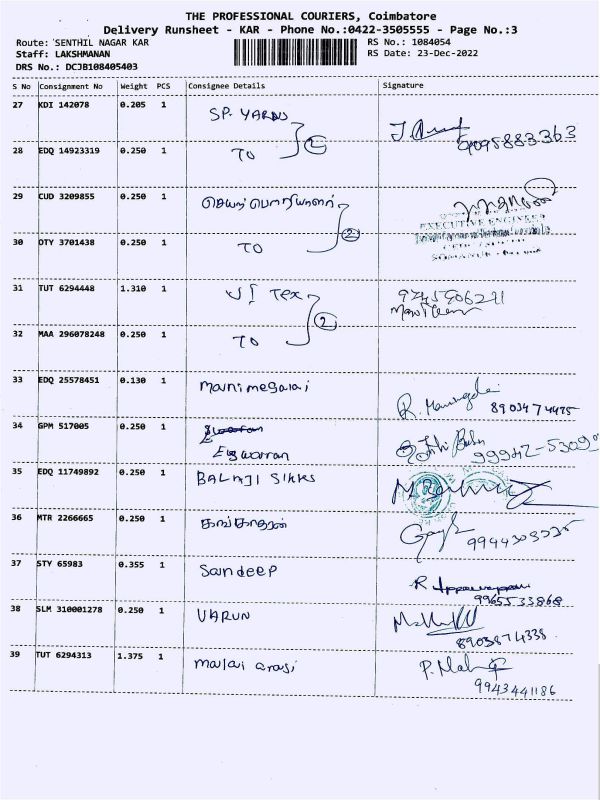 THE PROFESSIONAL COURIERS, Coimbatore
Delivery Runsheet - KAR - Phone No.:0422-3505555 - Page No.:3
Route: SENTHIL NAGAR KAR
RS No.: 1084054
Staff: LAKSHMANAN
RS Date: 23-Dec-2022
DRS No.: DCJB108405403
S No Consignment No Weight PCS Consignee Details Signature
27 KDI 142078 0.205 1 SP. YARNS
28 EDQ 14923319 0.250 1 TO 2
29 CUD 3209855 0.250 1
EXECUTIVE ENGINEER
30 OTY 3701438 0.250 1 TO 2
31 TUT 6294448 1.310 1 VI Tex
32 MAA 296078248 0.250 1 TO 2
33 EDQ 25578451 0.130 1 manimegalai
8903474475
34 GPM 517005 0.250 1
Eswarran
35 EDQ 11749892 0.250 1 BALAJI SIKKS
36 MTR 2266665 0.250 1 கங்காதரன்
37 STY 65983 0.355 1 Sandeep
9965533868
38 SLM 310001278 0.250 1 VARUN
8903874338
39 TUT 6294313 1.375 1 malai arasi
9943441186